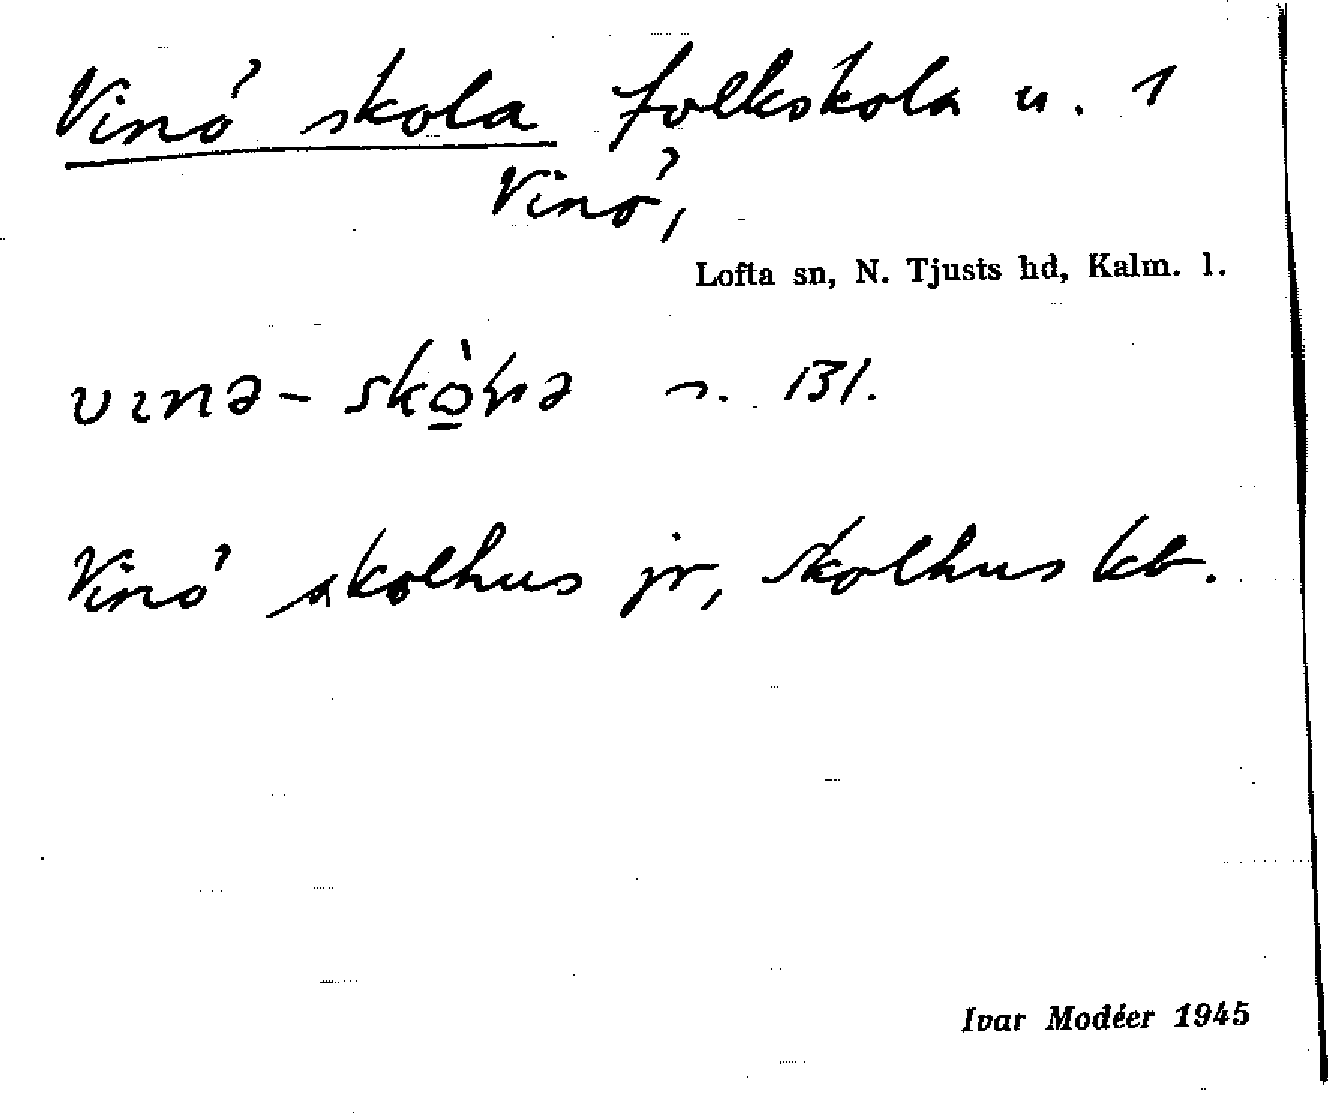 Vinö skola folkskola u. 1
Vinö,
Lofta sn, N. Tjusts hd, Kalm. l.
vɩnə- n. Bl.
Vinö skolhus jr, skolhus kb.
Ivar Modéer 1945